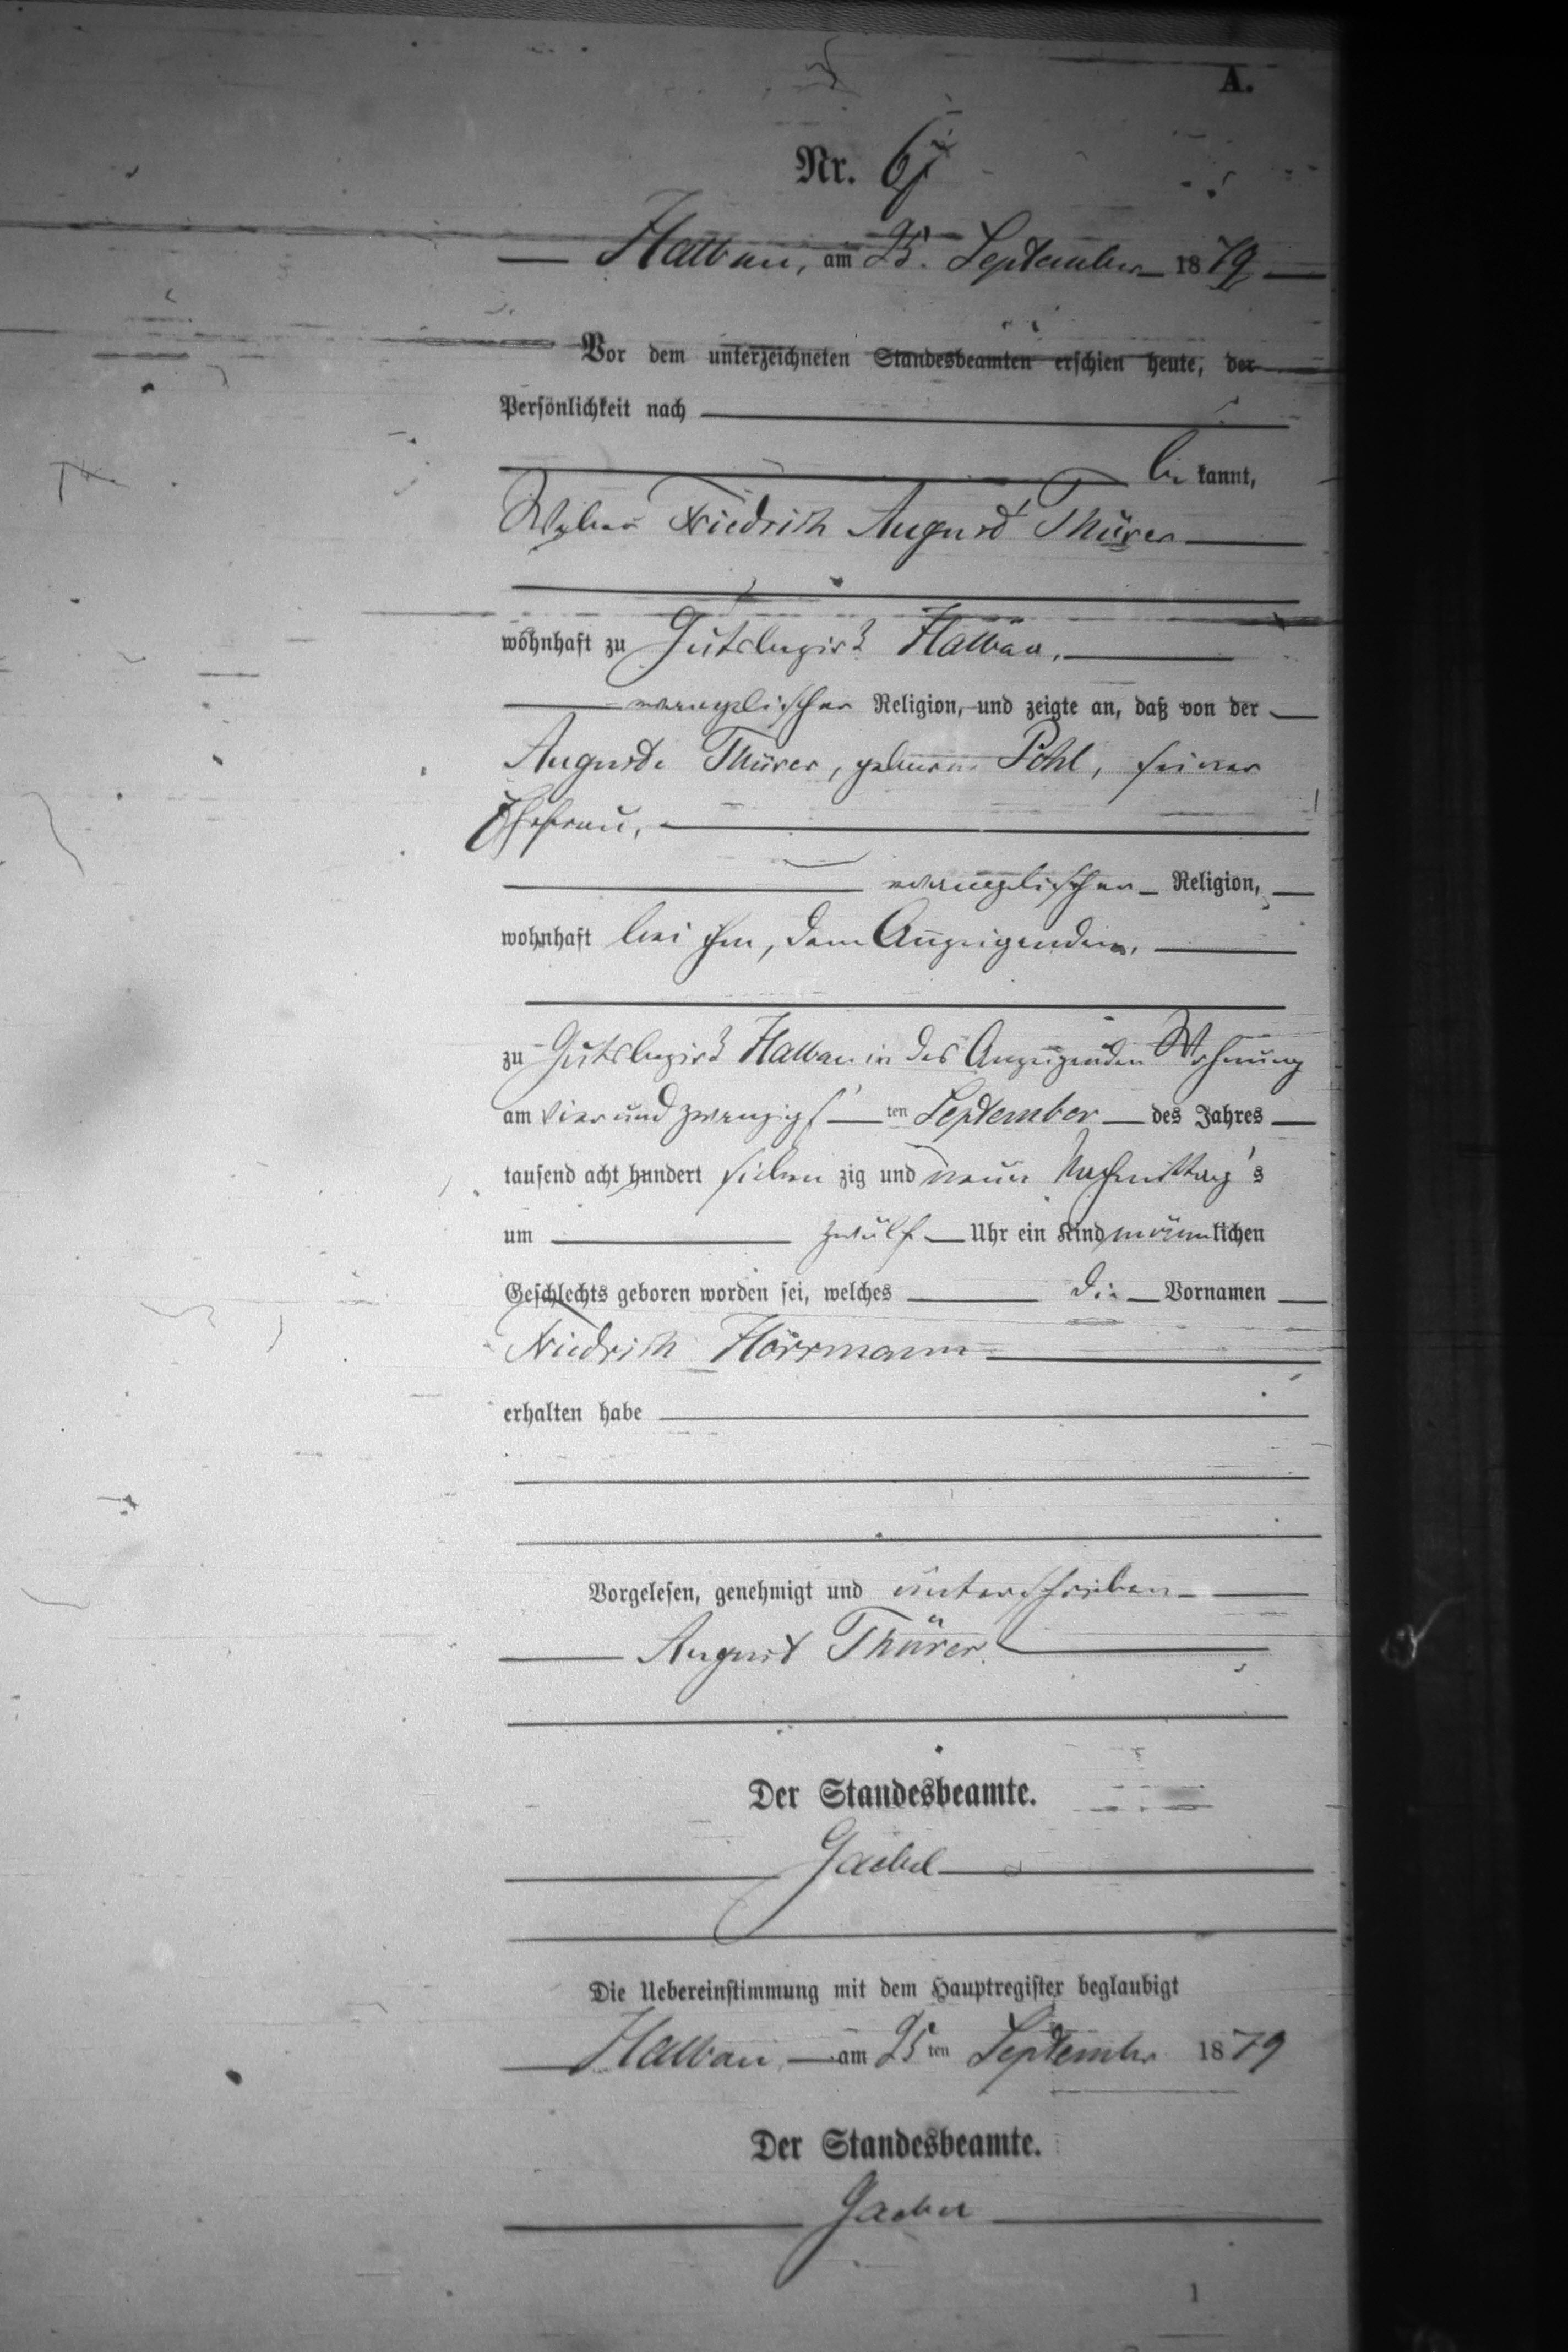 A.
Nr. 67
Halbau, am 25. September 1879
Vor dem unterzeichneten Standesbeamten erschien heute, der
Persönlichkeit nach
be kannt,
Weber Friedrich August Thürer
wohnhaft zu Gutsbezirk Halbau,
evangelischer Religion, und zeigte an, daß von der
Auguste Thürer, geborne Pohl, seiner
Ehefrau,
evangelischer Religion,
wohnhaft bei ihm, dem Anzeigenden,
zu Gutsbezirk Halbau in des Anzeigenden Wohnung
am vier und zwanzigsten September des Jahres
tausend acht hundert sieben zig und neun Nachmittag's
um zwölf Uhr ein Kind männlichen
Geschlechts geboren worden sei, welches die Vornamen
Friedrich Hörrmann
erhalten habe
Vorgelesen, genehmigt und unterschrieben
August Thürer
Der Standesbeamte.
Gaebel
Die Uebereinstimmung mit dem Hauptregister beglaubigt
Halbau, am 25ten September 1879
Der Standesbeamte.
Gaebel
1